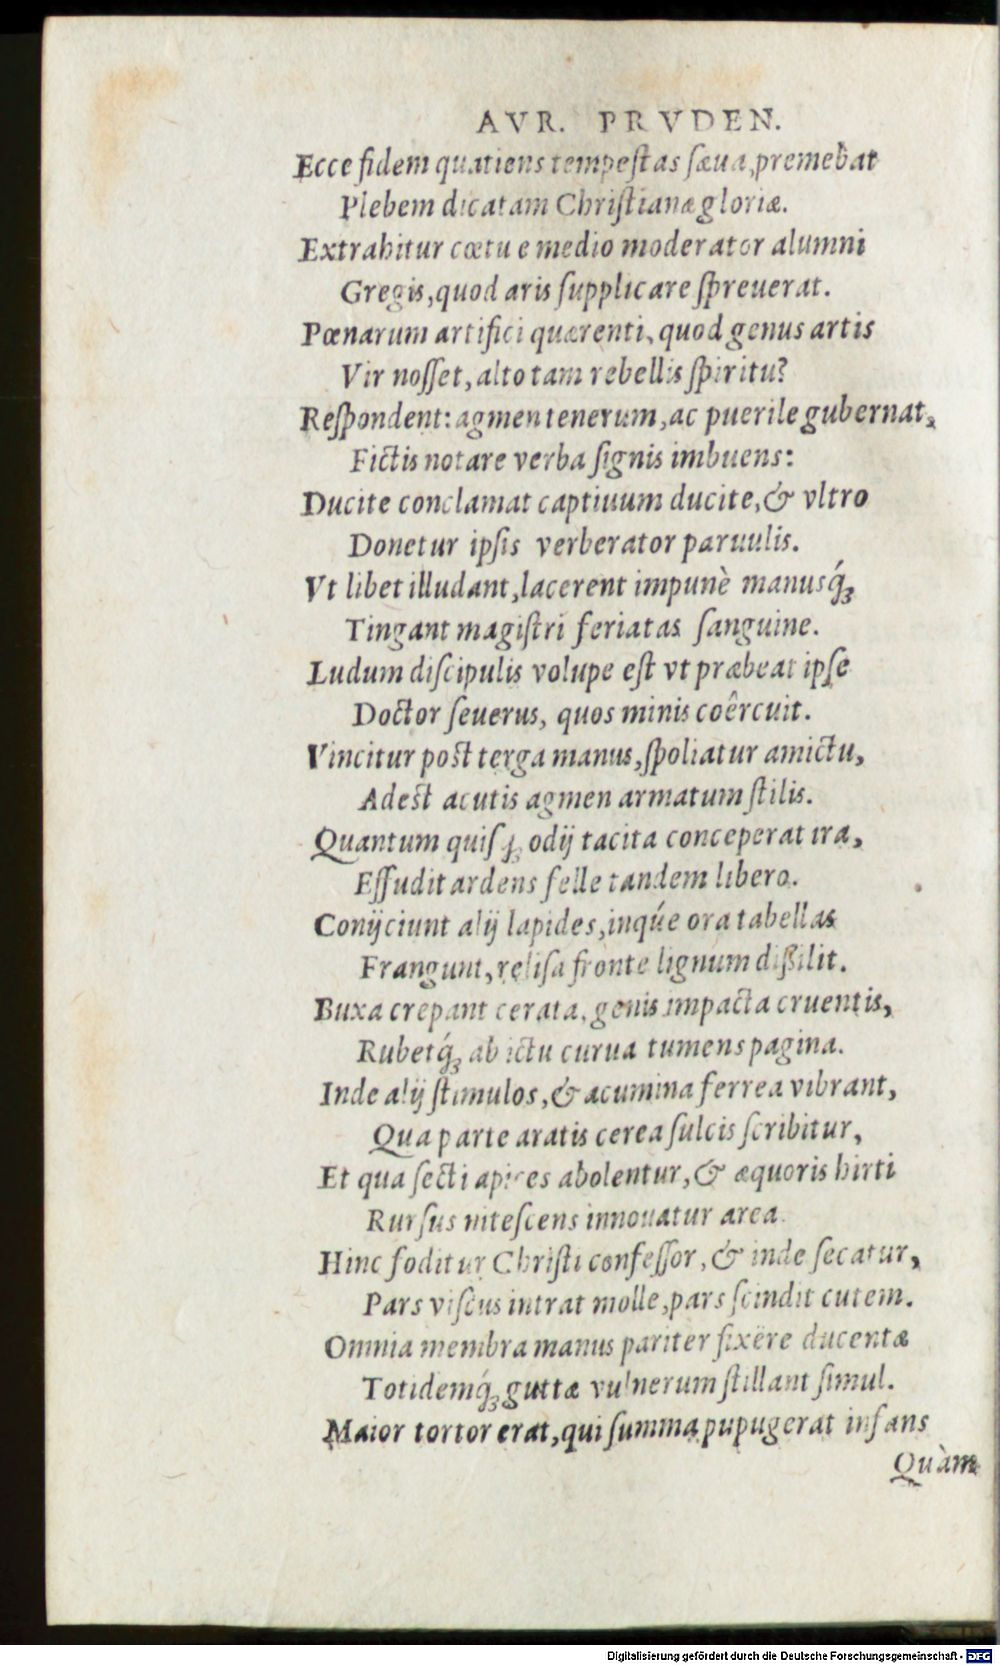 AVR. PRVDEN.
Ecce fidem quatiens tempeſtas ſæua, premebat
Plebem dicatam Chriſtianæ gloriæ.
Extrahitur cœtu e medio moderator alumni
Gregis, quod aris ſupplicare ſpreuerat.
Pœnarum artifici quærenti, quod genus artis
Vir noſſet, alto tam rebellis ſpiritu?
Reſpondent: agmen tenerum, ac puerile gubernat,
Fictis notare verba ſignis imbuens:
Ducite conclamat captiuum ducite, & vltro
Donetur ipſis verberator paruulis.
Vt libet illudant, lacerent impunè manusq́ꝫ
Tingant magiſtri feriatas ſanguine.
Ludum diſcipulis volupe eſt vt præbeat ipſe
Doctor ſeuerus, quos minis coêrcuit.
Vincitur poſt terga manus, ſpoliatur amictu,
Adeſt acutis agmen armatum ſtilis.
Quantum quiſqꝫ odij tacita conceperat ira,
Effudit ardens felle tandem libero.
Conijciunt alij lapides, inqúe ora tabellas
Frangunt, reliſa fronte lignum diſſilit.
Buxa crepant cerata, genis impacta cruentis,
Rubetq́ꝫ ab ictu curua tumens pagina.
Inde alij ſtimulos, & acumina ferrea vibrant,
Qua parte aratis cerea ſulcis ſcribitur,
Et qua ſecti apices abolentur, & æquoris hirti
Rurſus niteſcens innouatur area.
Hinc foditur Chriſti confeſſor, & inde ſecatur,
Pars viſcus intrat molle, pars ſcindit cutem.
Omnia membra manus pariter fixêre ducentæ
Totidemq́ꝫ guttæ vulnerum ſtillant ſimul.
Maior tortor erat, qui ſumma pupugerat infans
Quàm
Digitalisierung gefördert durch die Deutsche Forschungsgemeinschaft - DFG